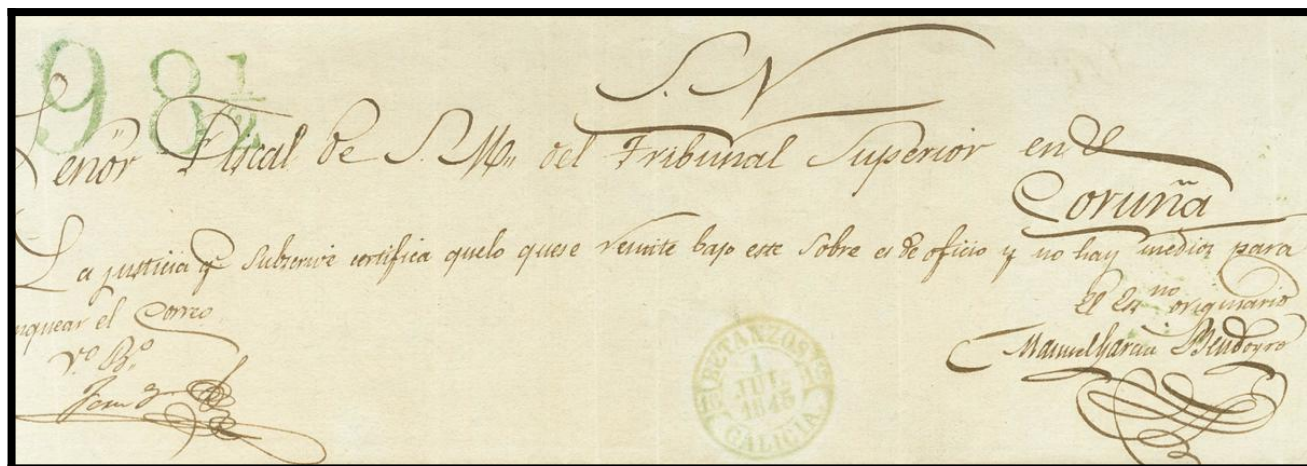 98 1/2
S. N
Señor Fiscal de S. M. del Tribunal Superior en la
Coruña
La justicia q subscrive certifica quelo quese remite bajo este sobre es de oficio y no hay medios para
nquear el Correo.
El Es.no originario
V.o B.o
Manuel Garcia Bendoyro
Juan
BETANZOS
1
JUL.
1845
GALICIA